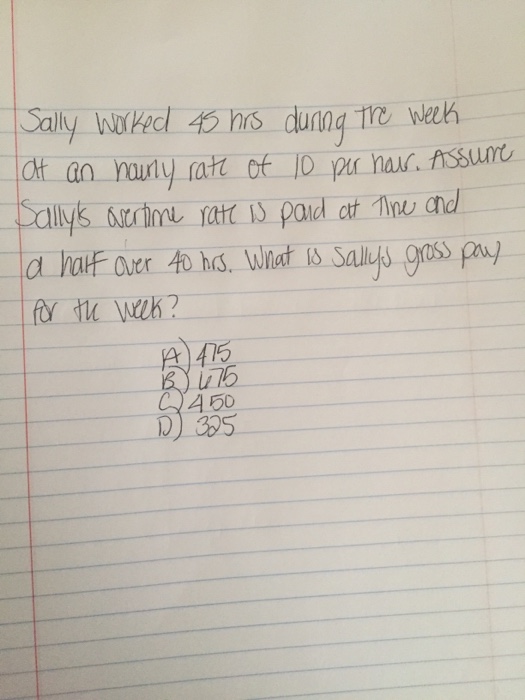 Sally worked 45 hrs during the week
at an hourly rate of 10 per hour. Assume
Sally's overtime rate is paid at time and
a half over 40 hrs. What is Sally's gross pay
for the week?
A) 475
B) 675
C) 450
D) 325